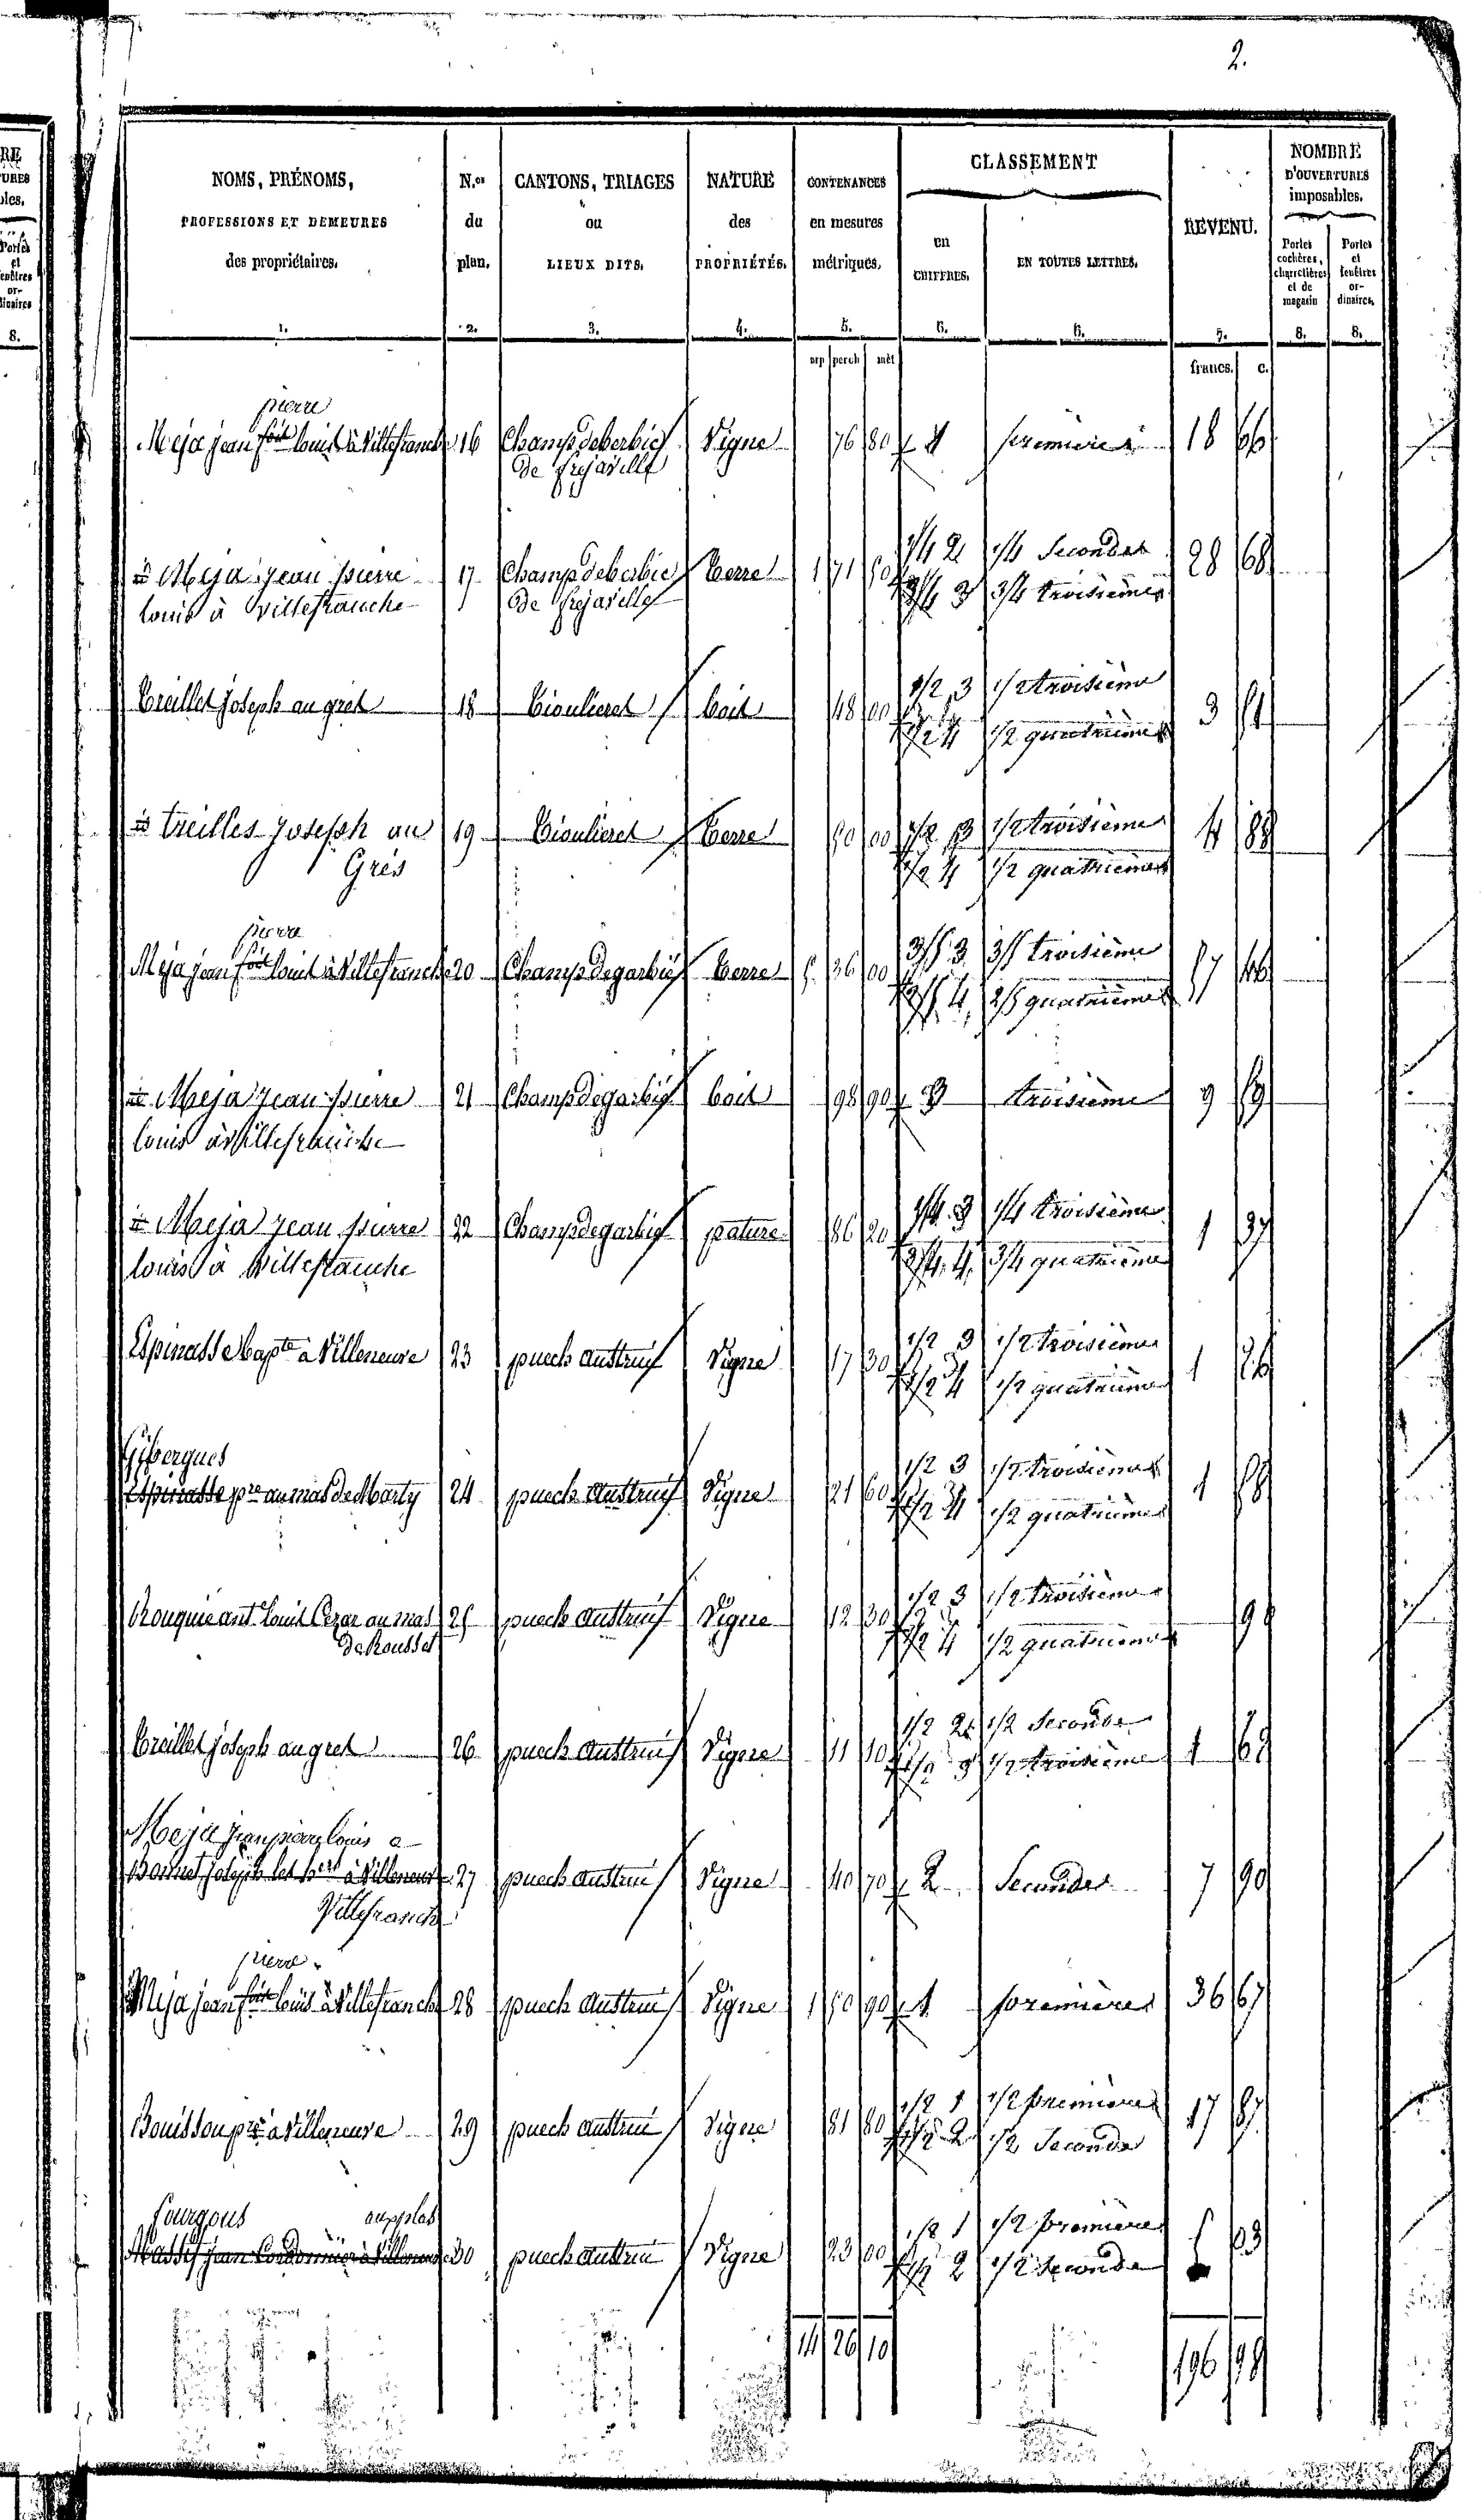 2.
NOMS, PRÉNOMS, PROFESSIONS ET DEMEURES des propriétaires. 1.
N.os du plan. 2.
CANTONS, TRIAGES ou LIEUX DITS. 3.
NATURE des PROPRIÉTÉS. 4.
CONTENANCES en mesures métriques. 5.
CLASSEMENT
en CHIFFRES. 6.
EN TOUTES LETTRES. 6.
REVENU. 7.
NOMBRE D'OUVERTURES imposables.
Portes cochères, charretières et de magasin 8.
Portes et fenêtres or-dinaires. 8.
arp perch mèt francs. c.
pierre
Meja jean louis à Villefranche 16 Champ deberbies Vigne 76 80 1 première 18 66
de frejaville
1/4 2 1/4 Seconde
Meja jean pierre 17 Champ deberbies terre 1 71 50 28 68
louis à Villefranche de frejaville 3/4 3 3/4 troisième
1/2 3 1/2 troisième
treilles joseph au grés 18 tioulieres bois 48 00 3
1/2 4 1/2 quatrième
treilles joseph au 19 tioulieres terre 50 00 1/2 3 1/2 troisième 4 88
Grés 1/2 4 1/2 quatrième
pierre
3/5 3 3/5 troisième
Meja jean louis à Villefranche 20 Champ degarbies terre 5 36 00 57 46
2/5 4 2/5 quatrième
Meja jean pierre 21 Champ degarbies bois 98 90 3 troisième 9 59
louis à Villefranche
1/4 3 1/4 troisième
Meja jean pierre 22 Champ degarbies pature 86 20 1 37
louis à Villefranche 3/4 4 3/4 quatrième
1/2 3 1/2 troisième
Espinasse bapte à Villeneuve 23 puech austruy Vigne 17 30 1 26
1/2 4 1/2 quatrième
Gibergues 1/2 3 1/2 troisième
Espinasse pre au mas de Marty 24 puech austruy Vigne 21 60 1 58
1/2 4 1/2 quatrième
1/2 3 1/2 troisième
Rouquie ant. Louis Cezar au mas 25 puech austruy Vigne 12 30
de Rousset 1/2 4 1/2 quatrième
1/2 2 1/2 Seconde
treilles joseph au grés 26 puech austruy Vigne 11 10 1
1/2 3 1/2 troisième
Meja jean pierre louis a
Bonnet joseph les hers à Villeneuve 27 puech austrui Vigne 40 70 2 Seconde 7 90
Villefranche
pierre
Meja jean louis à Villefranche 28 puech austrui Vigne 1 50 90 1 première 36 67
1/2 1 1/2 première
Bouissou pre à Villeneuve 29 puech austrui Vigne 81 80 17 87
1/2 2 1/2 Seconde
fourgous 1/2 1 1/2 première
Massip jean Cordonnier à Villeneuve 30 puech austrui Vigne 23 00 5 03
1/2 2 1/2 seconde
14 26 10 196 99